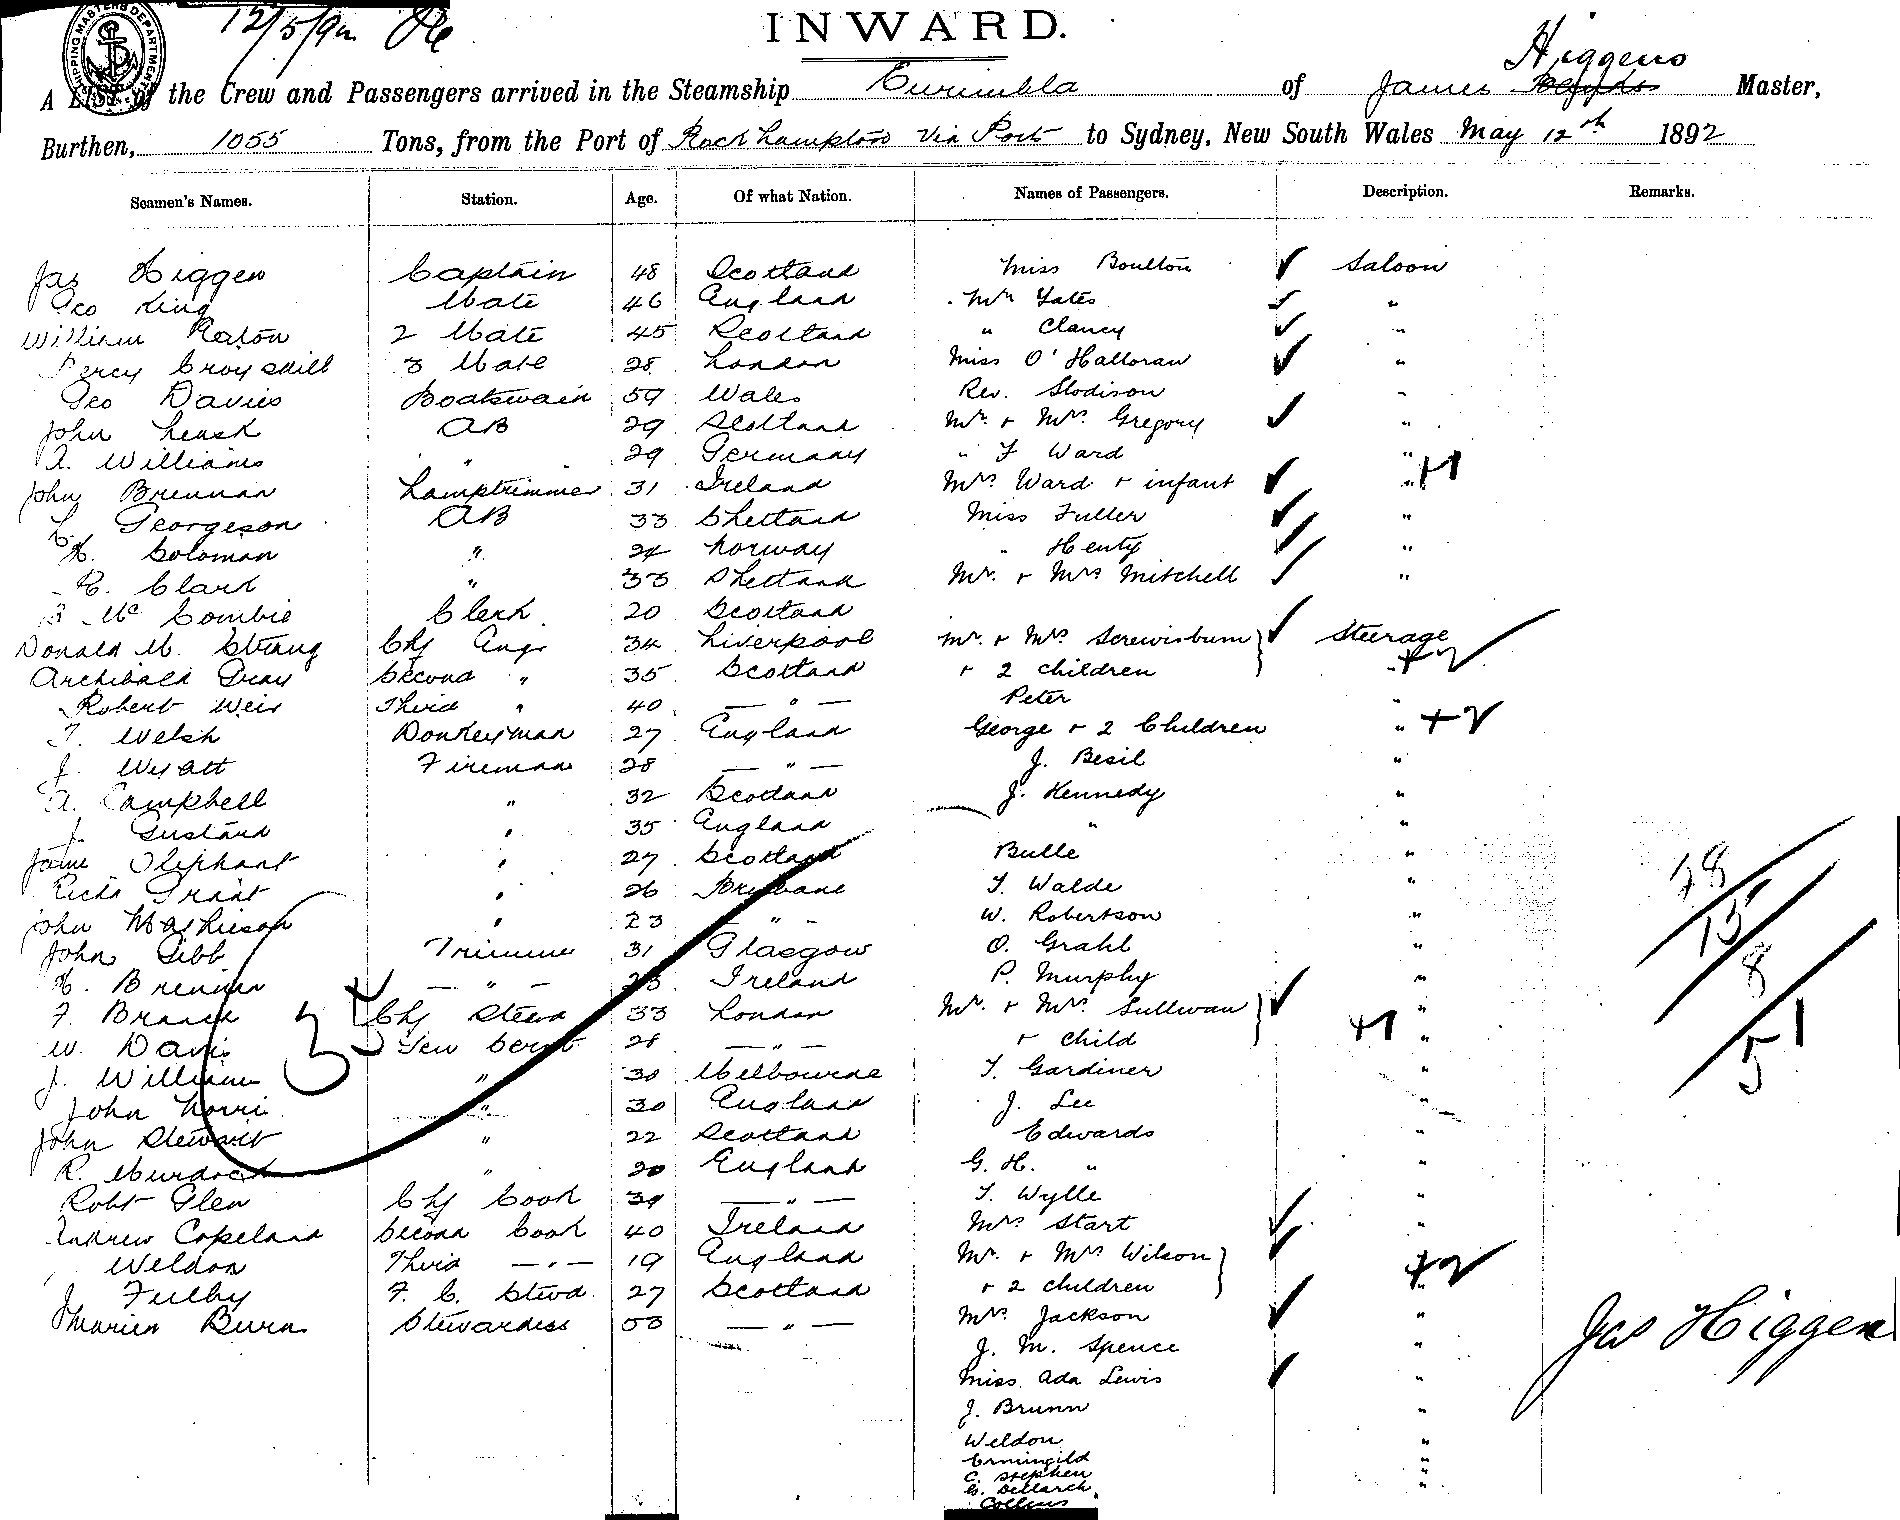 SHIPPING MASTERS DEPARTMENT
12/5/92
INWARD.
Higgens
A LIST of the Crew and Passengers arrived in the Steamship Eurimbla of James Master,
Burthen, 1055 Tons, from the Port of Rockhampton Via Ports to Sydney, New South Wales May 12th 1892
Seamen's Names. Station. Age. Of what Nation. Names of Passengers. Description. Remarks.
Jas Higgen Captain 48 Scotland Miss Boulton Saloon
Geo King Mate 46 England Mr Yates "
William Keaton 2 Mate 45 Scotland " Clancy "
Percy 3 Mate 28 London Miss O'Halloran "
Geo Davies Boatswain 59 Wales Rev. Slodison "
John Leask AB 29 Scotland Mr + Mrs Gregory "
A. Williams " 29 Germany " F Ward "
John Brennan Lamptrimmer 31 Ireland Mrs Ward + infant " +1
Georgeson AB 33 Shetland Miss Fuller "
H. Soloman " 24 Norway " Henty "
R. Clark " 33 Shetland Mr. + Mrs Mitchell "
Mc Combie Clerk 20 Scotland
Donald M. Strang Chf Engr 34 Liverpool Mr. + Mrs Screwisbum Steerage
Archibald Gray Second " 35 Scotland + 2 children " +2
Robert Weir Third " 40 — " — Peter "
T. Welsh Donkeyman 27 England George + 2 Children " +2
J. Wyatt Fireman 28 — " — J. Besil "
A. Campbell " 32 Scotland J. Kennedy "
J. Gustard " 35 England " "
Jame Oliphant " 27 Scotland Bulle "
Richd Grant " 26 Brisbane T. Walde "
John Mathieson " 23 " - W. Robertson "
John Gibb Trimmer 31 Glasgow O. Grahl "
H. Brennan — " — 23 Ireland P. Murphy "
F. Branch Chf Stewd 33 London Mr. + Mrs. Sullivan "
W. Davis Gen Servt 28 — " — + child +1 "
J. William " 30 Melbourne T. Gardiner "
John Norri " 30 England J. Lee "
John Stewart " 22 Scotland Edwards "
R. Murdoch " 20 England G. H. " "
Robt Glen Chf Cook 39 — " — T. Wylle "
Andrew Copeland Second Cook 40 Ireland Mrs Start "
Weldon Third — " — 19 England Mr. + Mrs Wilson
J. Fulby F. C. Stewd. 27 Scotland + 2 children " +2
Marien Burns Stewardess 53 — " — Mrs. Jackson "
J. M. Spence "
Miss Ada Lewis "
J. Brunn "
Weldon "
Ermingild "
C. Stephen "
G. Dellarch "
Collins
15
8
51
Jas Higgen